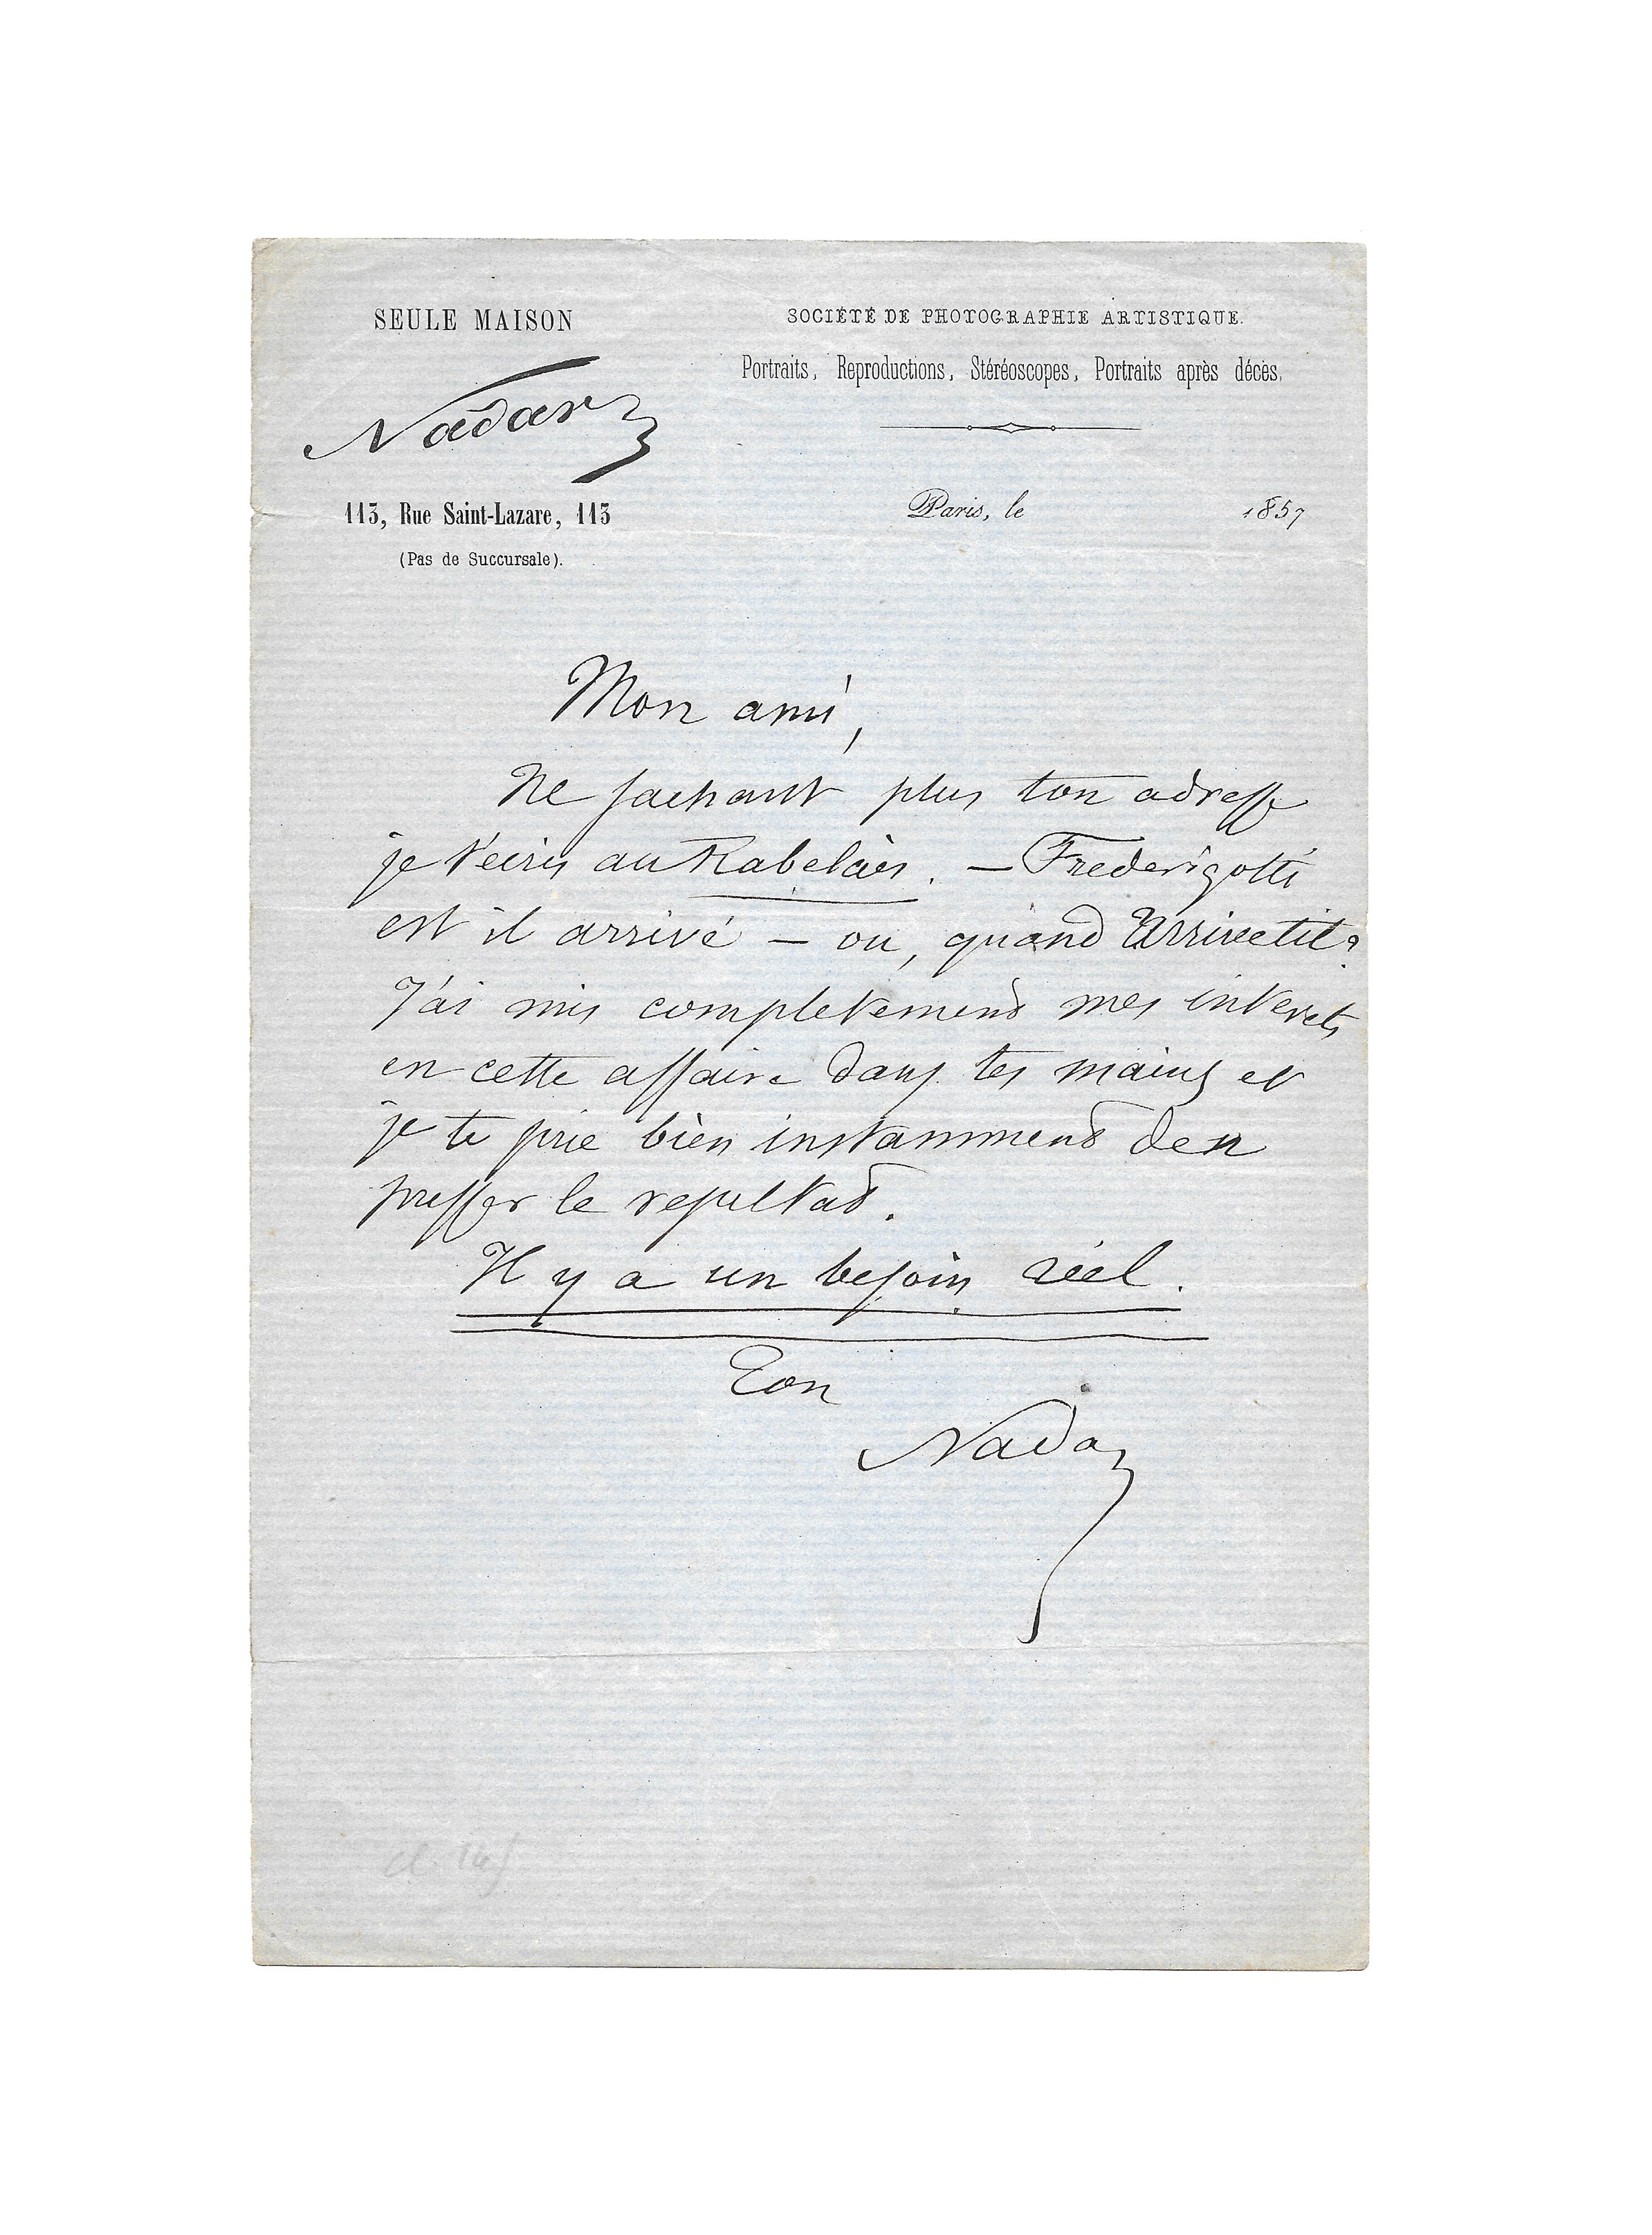 SEULE MAISON
Nadar
113, Rue Saint-Lazare, 113
(Pas de Succursale).
SOCIÉTÉ DE PHOTOGRAPHIE ARTISTIQUE.
Portraits, Reproductions, Stéréoscopes, Portraits après décès.
Paris, le 1857
Mon ami,
Ne sachant plus ton adresse
je t'écris au Rabelais. — Frederigotti
est il arrivé — ou, quand arrivetil?
J'ai mis completement mes interets
en cette affaire dans tes mains et
je te prie bien instamment den
presser le resultat.
Il y a un besoin réel.
Ton
Nadar